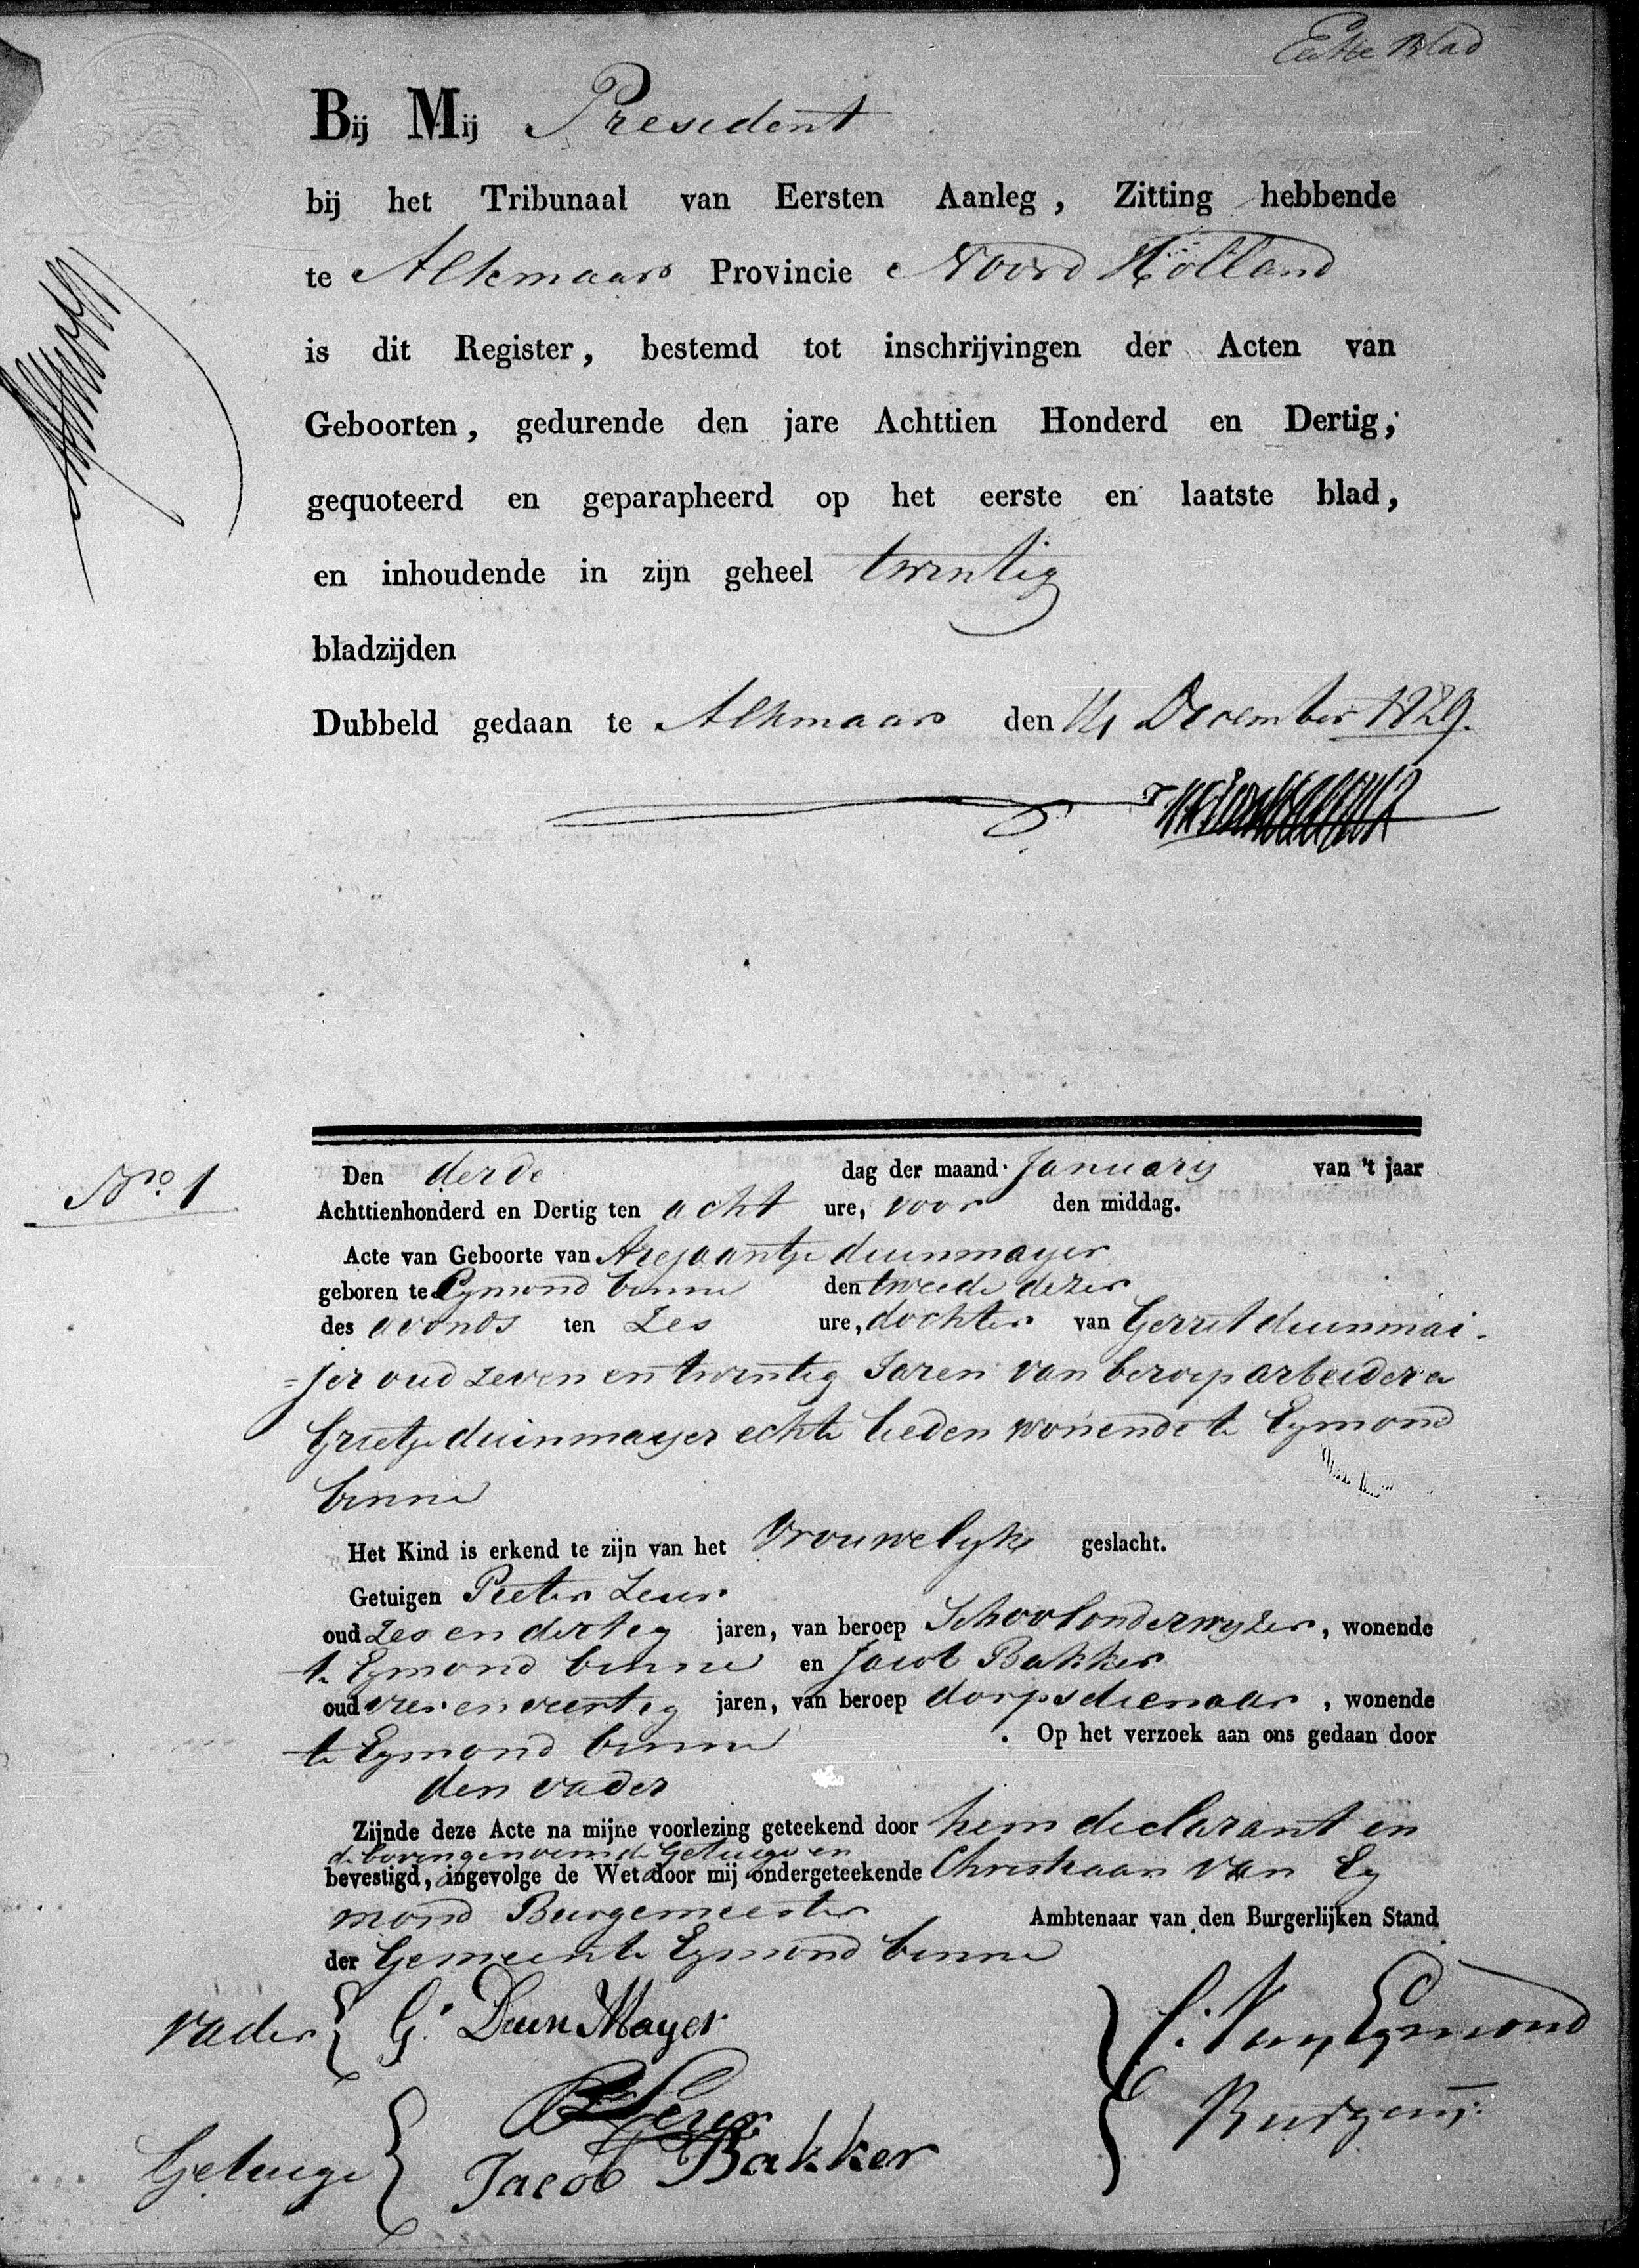 Eerste Blad
Bij Mij President
bij het Tribunaal van Eersten Aanleg, Zitting hebbende
te Alkmaar Provincie Noord Holland
is dit Register, bestemd tot inschrijvingen der Acten van
Geboorten, gedurende den jare Achttien Honderd en Dertig;
gequoteerd en geparapheerd op het eerste en laatste blad,
en inhoudende in zijn geheel twintig
bladzijden
Dubbeld gedaan te Alkmaar den 14 December 1829.
No. 1
Den derde dag der maand January van 't jaar
Achttienhonderd en Dertig ten acht ure, voor den middag.
Acte van Geboorte van Arejaantje duinmayer
geboren te Egmond binne den tweede dezer
des avonds ten Zes ure, dochter van Gerrit duinmai-
=jer oud zeven en twintig Jaren van beroep arbeider en
Grietje duinmayer echte lieden wonende te Egmond
binne
Het Kind is erkend te zijn van het Vrouwelyke geslacht.
Getuigen Pieter Leur
oud Zes en dertig jaren, van beroep Schoolonderwyzer, wonende
te Egmond binne en Jacob Bakker
oud vier en veertig jaren, van beroep dorpsdienaar, wonende
te Egmond binne . Op het verzoek aan ons gedaan door
den vader
Zijnde deze Acte na mijne voorlezing geteekend door hem declarant en
de bovengenoemde Getuige en
bevestigd, ingevolge de Wet door mij ondergeteekende Christiaan van Eg
mond Burgemeester Ambtenaar van den Burgerlijken Stand
der Gemeente Egmond binne
vader G. Duin Mayer C. Van Egmond
P Leur Burgem:
Getuige Jacob Bakker